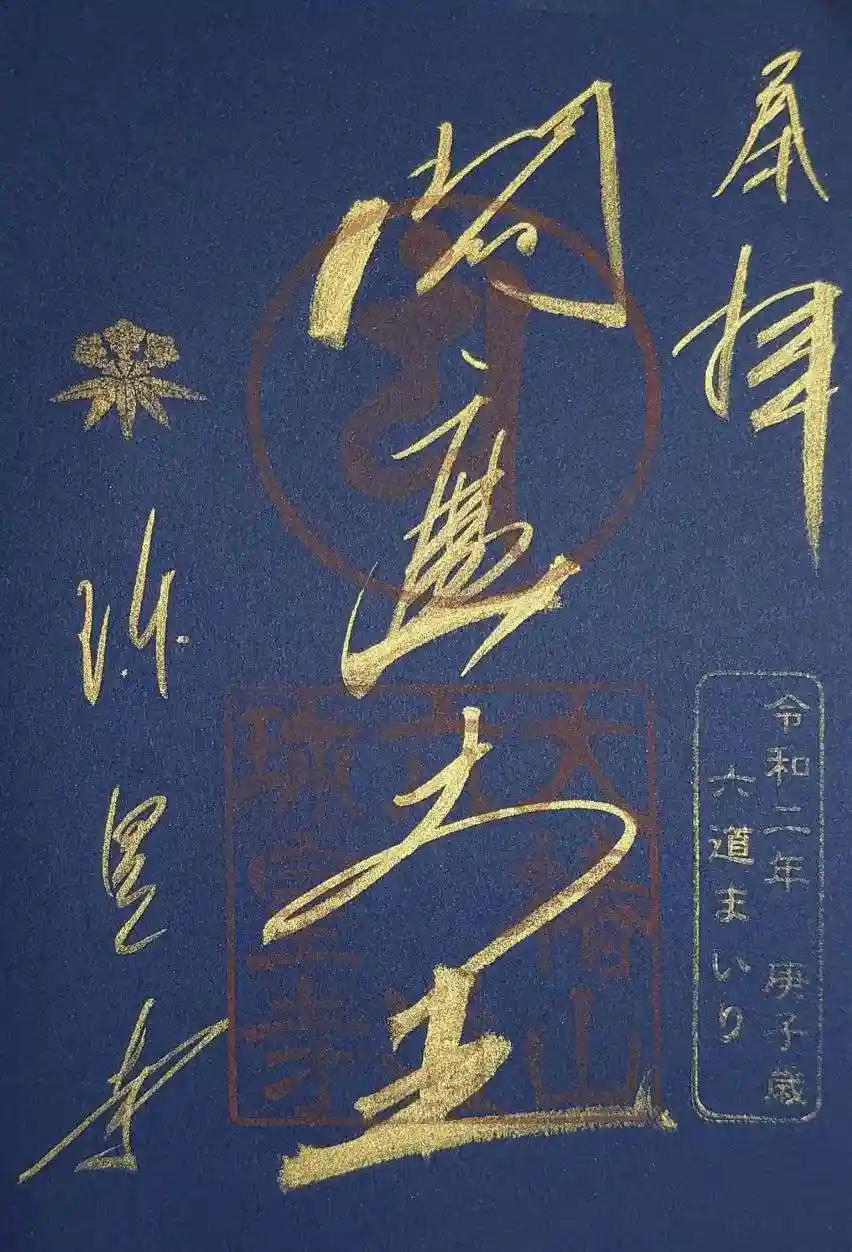 奉拝
令和二年 庚子歳
六道まいり
閻魔大王
大椿山
六道
珍皇寺
珍皇寺